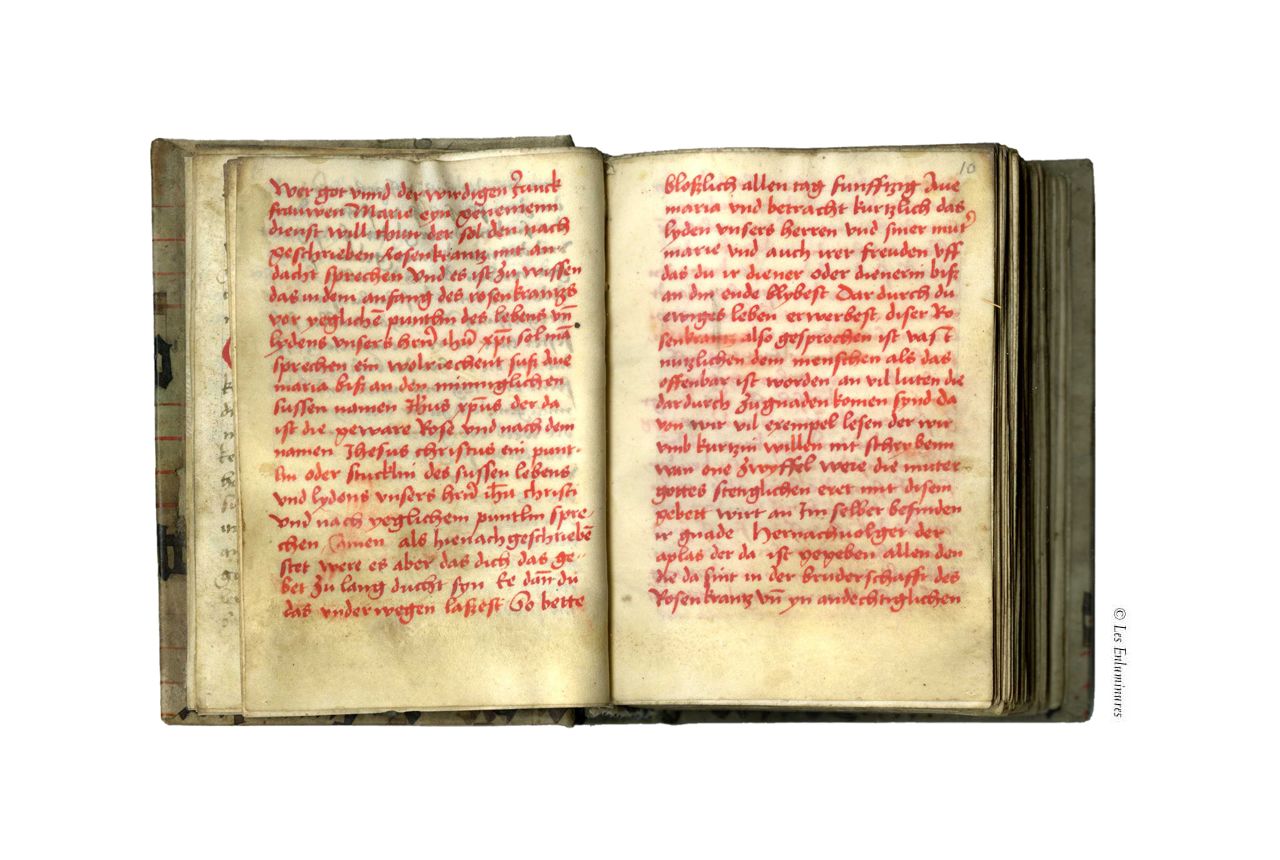 Wer got vnnd der wirdigen Junck
frauwen Marie eyn genemenn
dienst will thun der sol den nach
geschrieben Rosenkrantz mit an-
dacht sprechen vnd es ist zu wissen
das in dem anfang des rosenkrantzs
vor yeglichē puntlin des lebens vn̄
lydens vnsers hrn̄ ihū xp̄i sol mā
sprechen ein wolriechent suß aue
maria biß an den minniglichen
sussen namen Jh̄us xp̄us der da
ist die geware Rose vnd nach dem
namen Jhesus christus ein punt-
lin oder stucklin des sussen lebens
vnd lydens vnsers hrn̄ ih̄u christi
vnd nach yeglichem puntlin spre-
chen Amen als hienach geschriebē
stet were es aber das dich das ge-
bet zu lang ducht syn Ee dan̄ du
das vnderwegen lassest So bette
10
bloßlich allen tag funfftzig Aue
maria vnd betracht kurtzlich das
lyden vnsers herren vnd siner mut̾
marie vnd auch irer freuden vff
das du ir diener oder dienerin biß
an din ende blybest Dar durch du
ewiges leben erwerbest diser Ro-
senkrantz also gesprochen ist vast
nutzlichen dem menschen als das
offenbar ist worden an vil luten die
dardurch zu gnaden komen synd da
von wir vil exempel lesen der wir
vmb kurtzin willen nit schribenn
wan one zwyffel were die muter
gottes stettiglichen eret mit disem
gebett wirt an Im selber befinden
ir gnade Hernachuolget der
aplas der da ist gegeben allen den
die da sint in der bruderschafft des
Rosenkrantz vn̄ yn andechtiglichen
© Les Enluminures